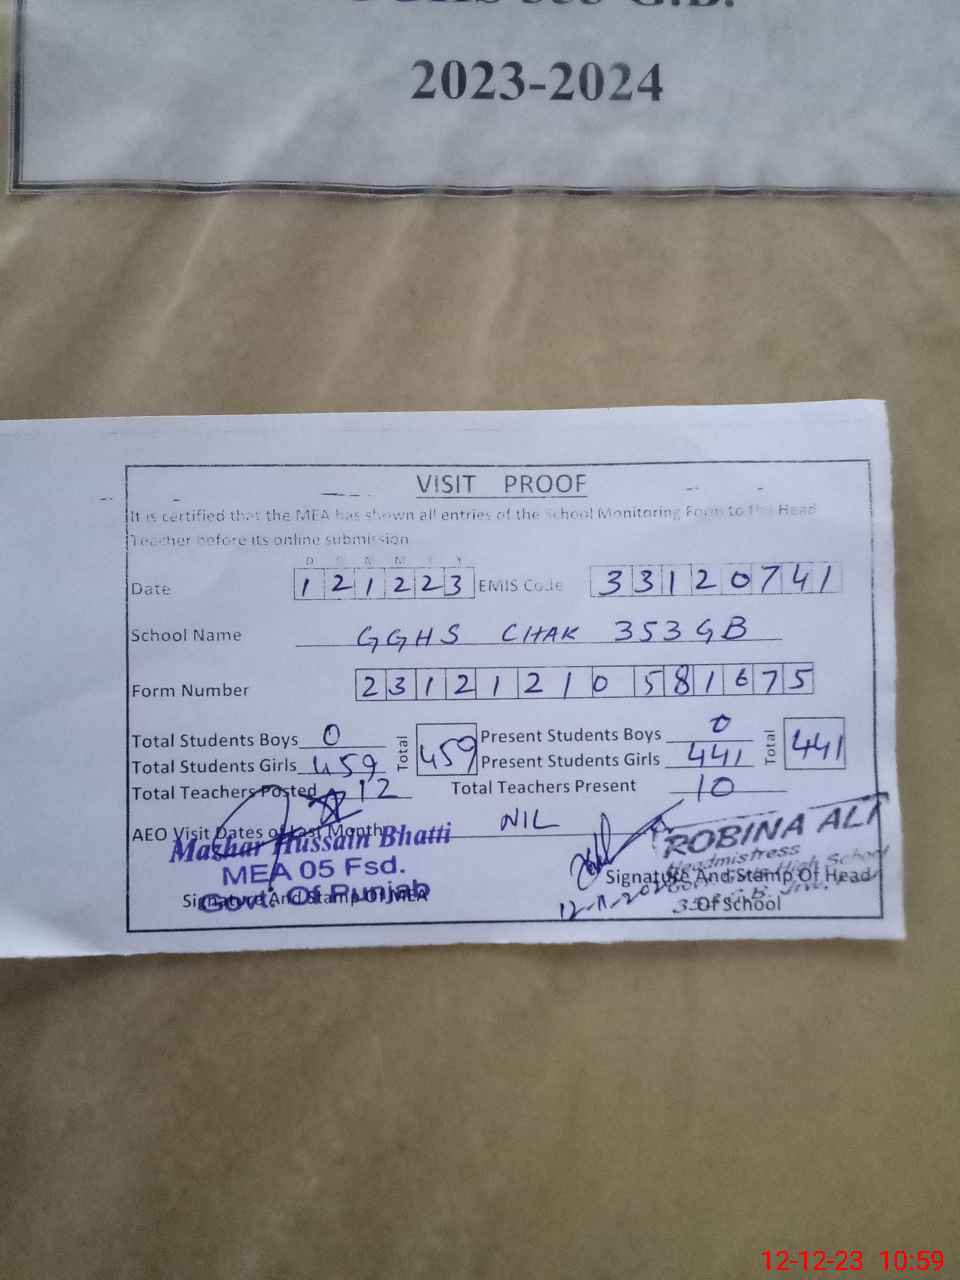 2023-2024
VISIT PROOF
It is certified that the MEA has shown all entries of the school Monitoring Form to the Head
Teacher before its online submission
Date 121223 EMIS Code 33120741
School Name GGHS CHAK 353 GB
Form Number 23121210581675
Total Students Boys 0 Total 459 Present Students Boys 0 Total 441
Total Students Girls 459 Present Students Girls 441
Total Teachers Posted 12 Total Teachers Present 10
AEO Visit Dates of Last Month NIL
Mazhar Hussain Bhatti
MEA 05 Fsd.
Govt. Of Punjab
Signature And Stamp Of MEA
ROBINA ALI
Headmistress
High School
Signature And Stamp Of Head
Of School
12-12-23 10:59